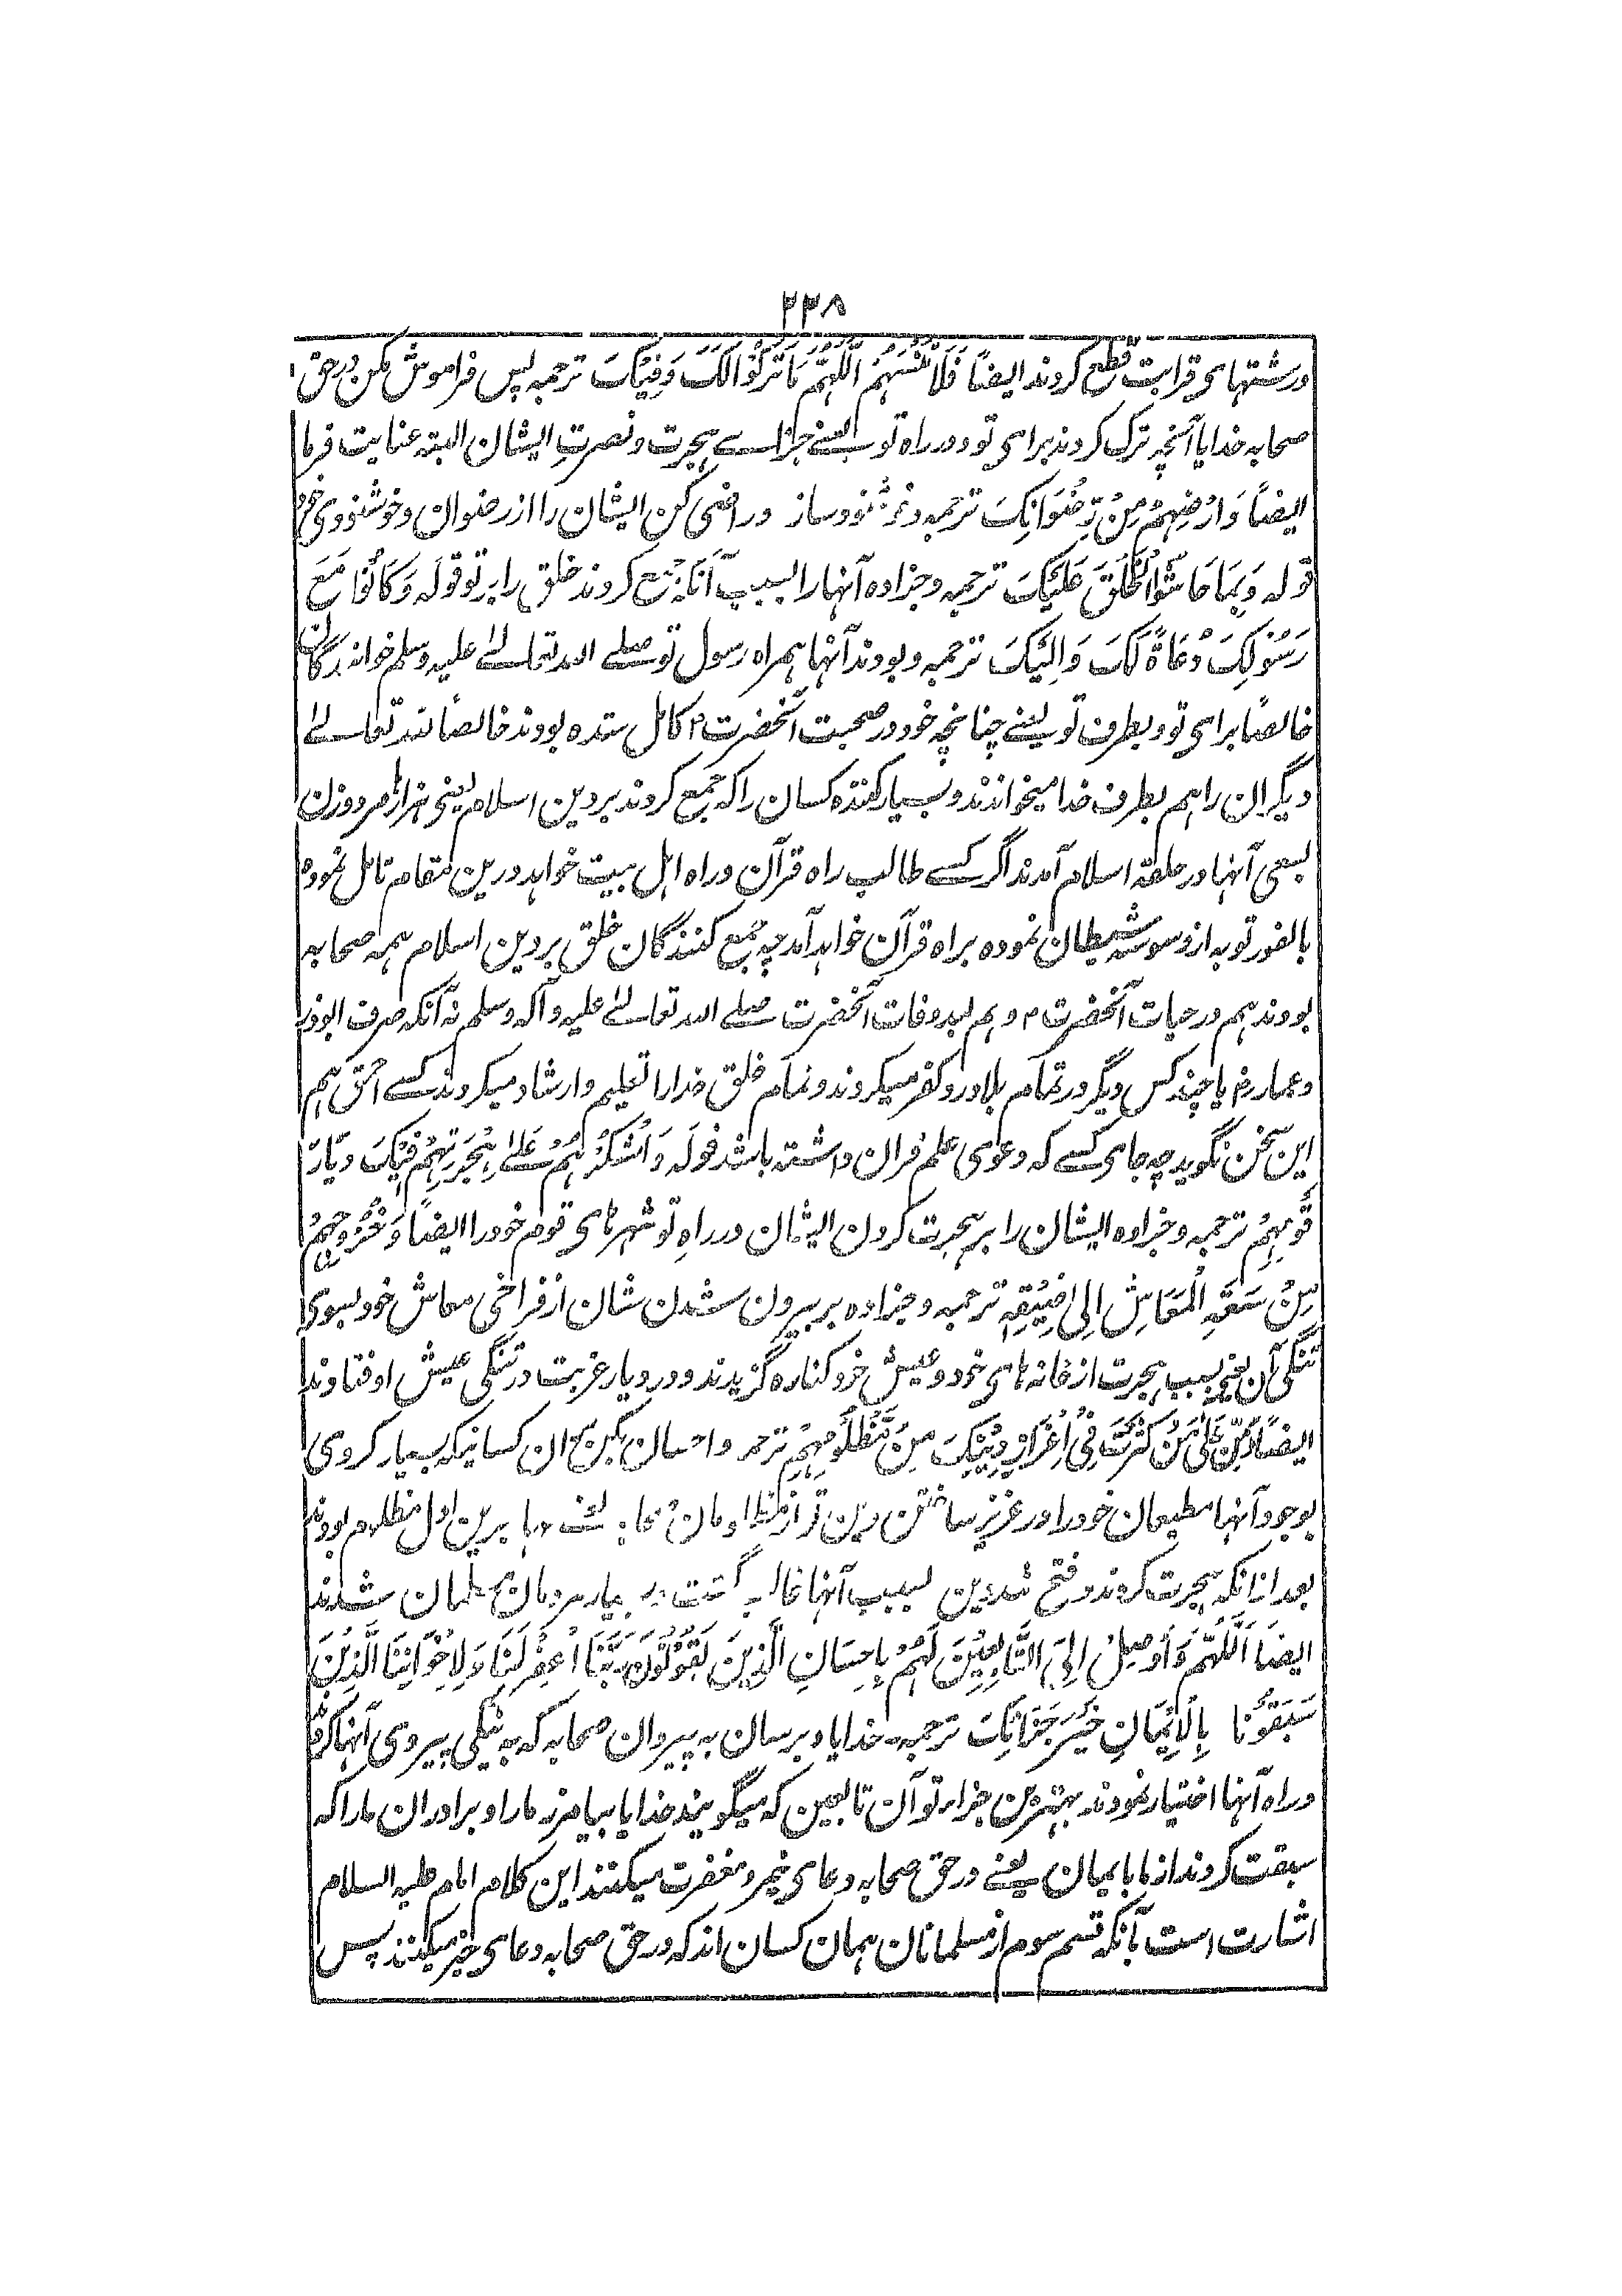 ۲۳۸
ورشتهای قرابت قطع کردند ایضاً فَلَا تَنْسَهُمُ اَللّٰهُمَّ مَا تَرَکُوْا لَکَ وَفِیْکَ ترجمہ پس فراموش مکن درحق
صحابہ خدایا آنچہ ترک کردند برای تو و در راہ تو یعنے جزاے ہجرت و نصرتِ ایشان البتہ عنایت فرما
ایضاً وَ اَرْضِہِمْ مِنْ رِضْوَانِکَ ترجمہ و خوشنود ساز و راضی کن ایشان را از رضوان و خوشنودی خود
قولہ وَبِمَا حَاشُوا الْخَلْقَ عَلَیْکَ ترجمہ و جزا دہ آنہا را بسبب آنکہ جمع کردند خلق را بر تو قولہ وَکَانُوْا مَعَ
رَسُوْلِکَ دُعَاةً لَکَ وَاِلَیْکَ ترجمہ و بودند آنہا ہمراہ رسول تو صلے اللہ تعالےٰ علیہ وسلم خوانندگان
خالصًا برای تو و بطرف تو یعنے چنانچہ خود در صحبت آنحضرت ؐ کامل شدہ بودند خالصاً للہ تعالےٰ
دیگران را ہم بطرف خدا میخواندند و بسیار کنندہ کسان را کہ جمع کردند بر دین اسلام یعنی ہزارہا مرد وزن
بسعی آنہا در حلقۂ اسلام آمدند اگر کسے طالب راہ قرآن و راہ اہل بیت خواہد درین مقام تامل نمودہ
بالفور توبہ از وسوسۂ شیطان نمودہ براہ قرآن خواہد آمد چہ جمع کنندگان خلق بر دین اسلام ہمہ صحابہ
بودند ہم در حیات آنحضرت ؐ و ہم بعد وفات آنحضرت صلے اللہ تعالےٰ علیہ و آلہ وسلم نہ آنکہ صرف ابوذر
وعمار رضہ یا چند کس دیگر در تمام بلاد رد کفر میکردند و تمام خلق خدا را تعلیم و ارشاد میکردند کسے احمق ہم
این سخن نگوید چہ جای کسے کہ دعوی علم قرآن داشتہ باشد قولہ وَاشْکُرْہُمْ عَلیٰ ہِجْرَتِہِمْ فِیْکَ دِیَارَ
قَوْمِہِمْ ترجمہ و جزا دہ ایشان را بر ہجرت کردن ایشان در راہِ تو شہرہای قوم خود را ایضاً وَخُرُوْجِہِمْ
مِنْ سَعَةِ الْمَعَاشِ اِلیٰ ضِیْقِہٖ ترجمہ و جزا دہ بر بیرون شدن شان از فراخی معاش خود بسوی
تنگی آن یعنی بسبب ہجرت از خانہ ہای خود و عیش خود کنارہ گزیدند و در دیار غربت در تنگی عیش اوفتادند
ایضاً وَمَنْ کَثَّرْتَ فِیْ اِعْزَازِ دِیْنِکَ مِنْ مَظْلُوْمِہِمْ ترجمہ و احسان بکن بر آن کسانیکہ بسیار کردی
بوجود آنہا مطیعان خود را در عزیز ساختن دین تو از مظلومان صحابہ اول مظلوم بودند
بعد ازانکہ ہجرت کردند و فتح شد دین بسبب آنہا غالب گشت و بسیار مردمان مسلمان شدند
ایضاً اَللّٰهُمَّ وَاَوْصِلْ اِلَی التَّابِعِیْنَ لَہُمْ بِاِحْسَانٍ الَّذِیْنَ یَقُوْلُوْنَ رَبَّنَا اغْفِرْ لَنَا وَلِاِخْوَانِنَا الَّذِیْنَ
سَبَقُوْنَا بِالْاِیْمَانِ خَیْرَ جَزَائِکَ ترجمہ۔ خدایا و برسان بہ پیروان صحابہ کہ بہ نیکی پیروی آنہا کردند
و راہ آنہا اختیار نمودند بہترین جزاء تو آن تابعین کہ میگویند خدایا بیامرز مارا و برادران مارا کہ
سبقت کردند از ما بایمان یعنے در حق صحابہ دعای خیر و مغفرت میکنند این کلام امام علیہ السلام
اشارت است بآنکہ قسم سوم از مسلمانان ہمان کسان اند کہ در حق صحابہ دعای خیر میکنند پس